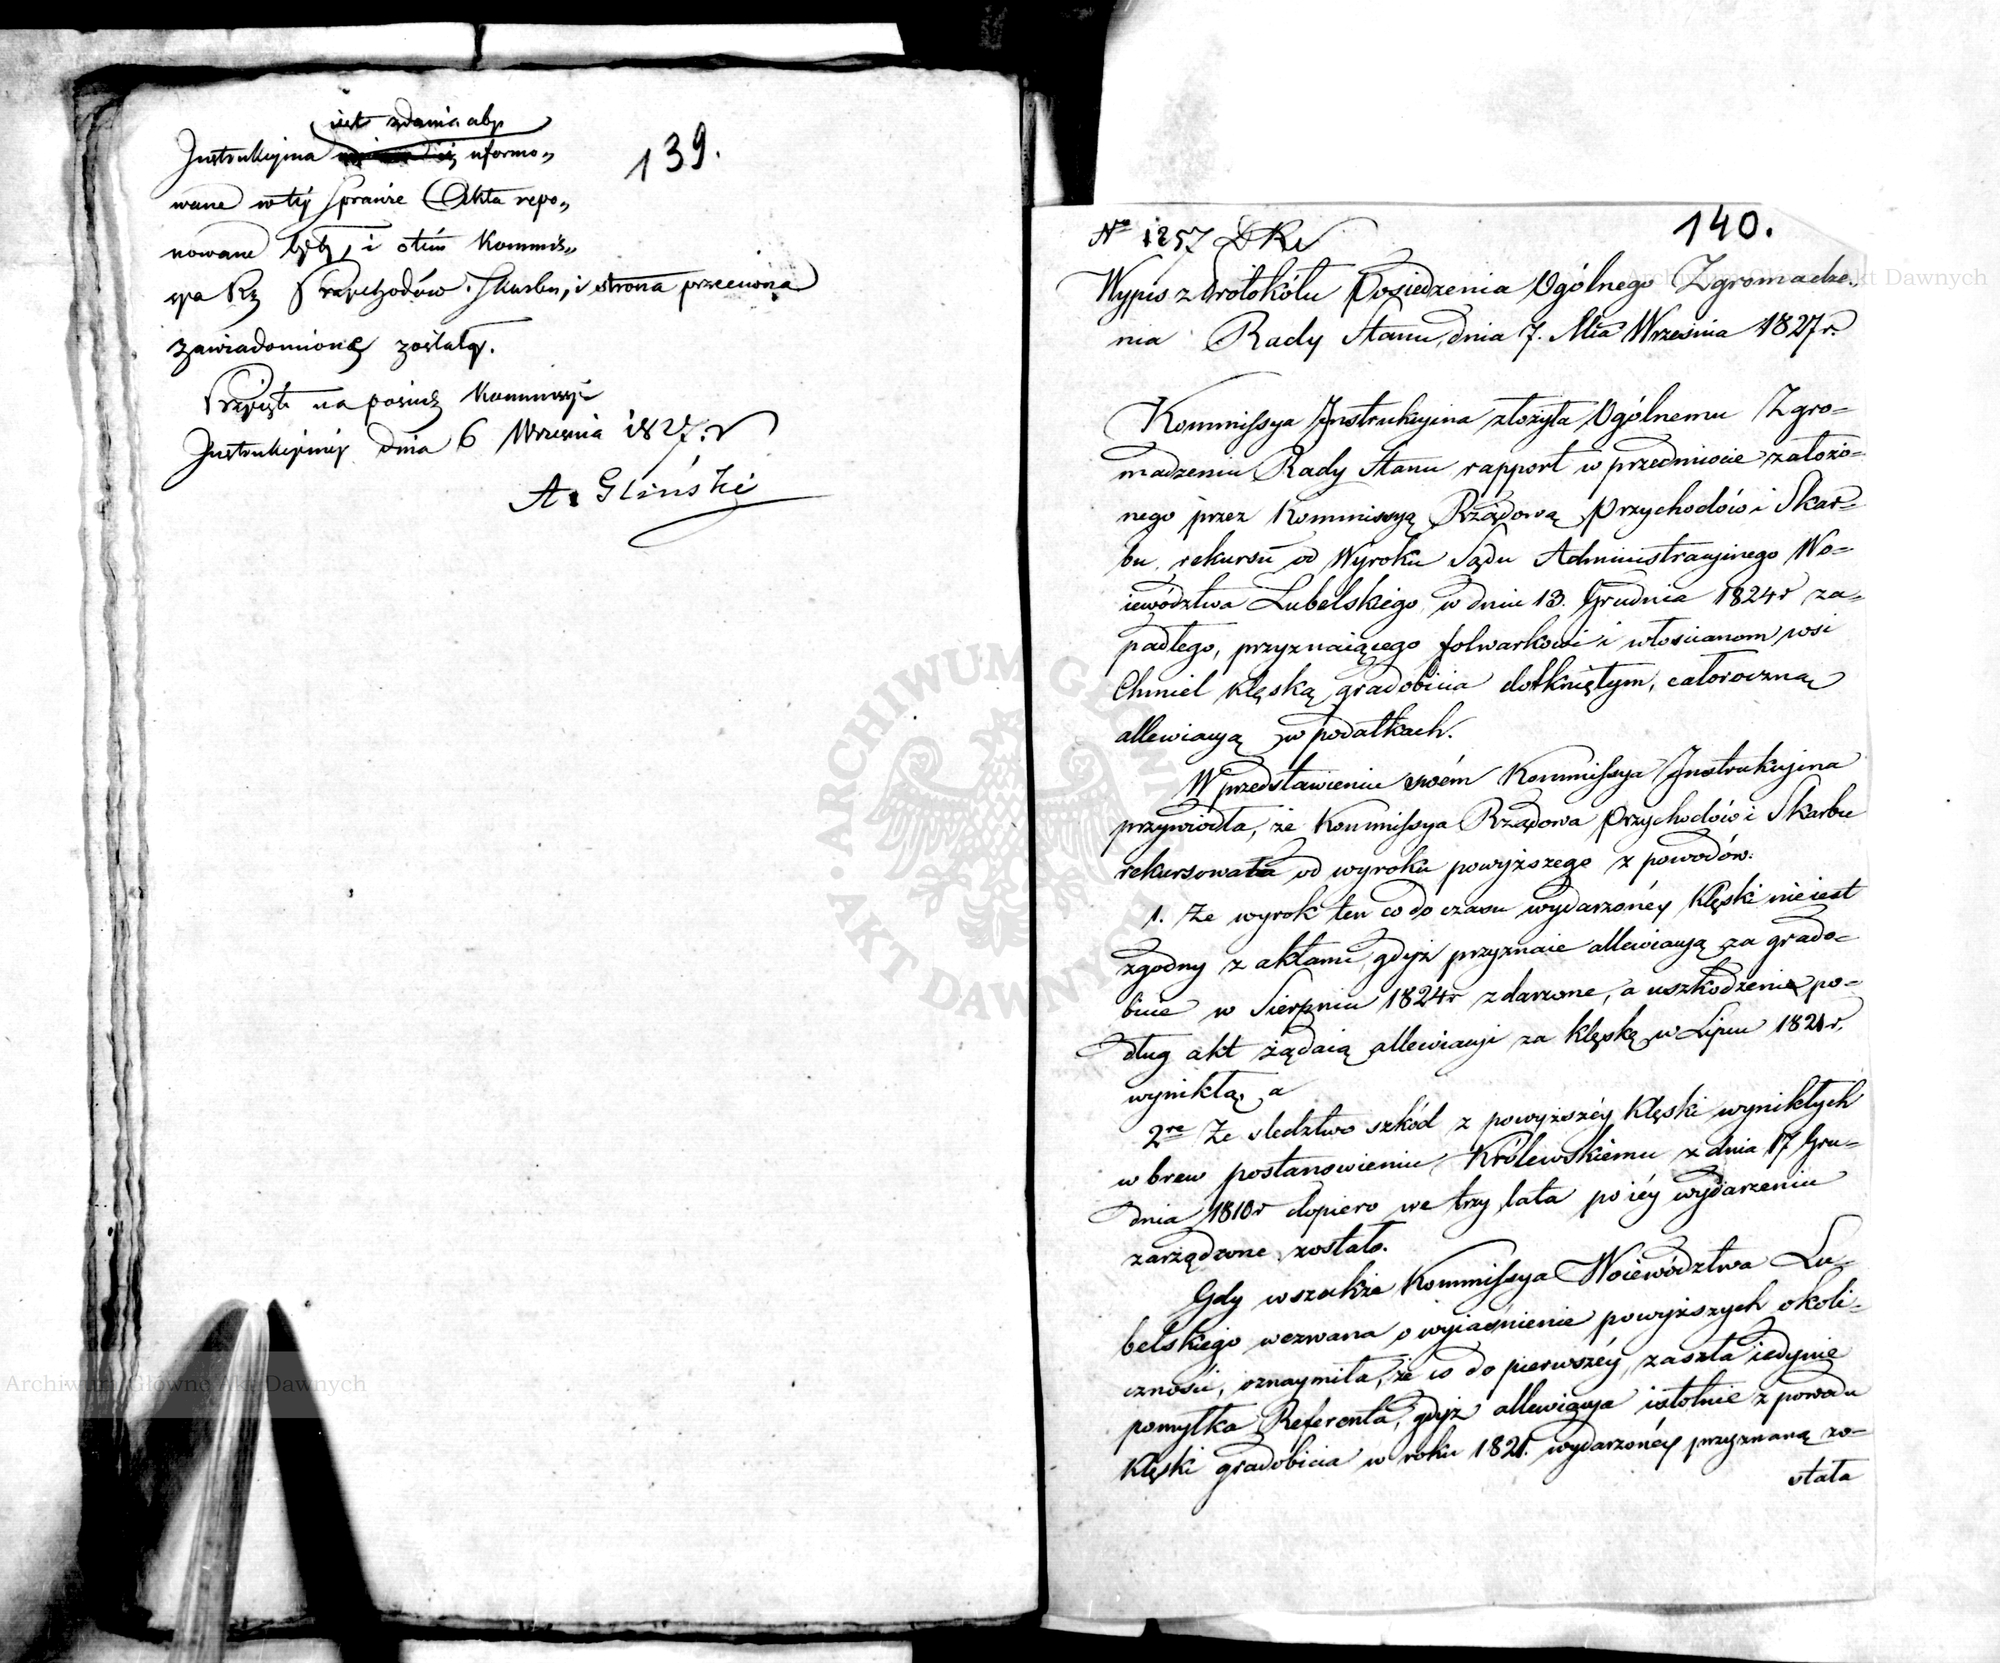 139.
iest zdania aby
Instrukcyina uformo„
wane w téy Sprawie Akta repo„
nowane były, i o tém Kommis„
sya Rz Przychodów i Skarbu, i strona przeciwna
zawiadomione zostały.
Przyięte na posiedz Kommissyi
Instrukcyinéy dnia 6 Września 1827. r
A. Gliński
140.
Nro 1257 DKr
Wypis z Protokółu Posiedzenia Ogólnego Zgromadze„
nia Rady Stanu, dnia 7. Mca Września 1827 r.
Kommissya Instrukcyina złożyła Ogólnemu Zgro=
madzeniu Rady Stanu rapport w przedmiocie założo=
nego przez Kommissyą Rządową Przychodów i Skar=
bu, rekursu od Wyroku Sądu Administracyinego Wo=
iewództwa Lubelskiego, w dniu 13. Grudnia 1824 r za=
padłego, przyznaiącego folwarkowi i włościanom wsi
Chmiel klęską gradobicia dotkniętym, całoroczną
allewiacyą w podatkach.
W przedstawieniu swém Kommissya Instrukcyina
przywiodła, że Kommissya Rządowa Przychodów i Skarbu
rekursowała od wyroku powyższego z powodów:
1. Że wyrok ten co do czasu wydarzonéy klęski nie iest
zgodny z aktami, gdyż przyznaie allewiacyą za grado=
bicie w Sierpniu 1824 r zdarzone, a uszkodzenie po=
dług akt żądaią allewiacyi za klęskę w Lipcu 1821 r.
wynikłą, a
2re Że śledztwo szkód z powyższéy klęski wynikłych
wbrew postanowieniu Królewskiemu z dnia 17 Gru=
dnia 1810 r dopiero we trzy lata po iéy wydarzeniu
zarządzone zostało.
Gdy wszakże Kommissya Woiewództwa Lu=
belskiego wezwana o wyiaśnienie powyższych okoli=
czności, oznaymiła, że co do pierwszéy, zaszła iedynie
pomyłka Referenta, gdyż allewiacya istotnie z powodu
klęski gradobicia w roku 1821. wydarzonéy przyznaną zo=
stała
Archiwum Główne Akt Dawnych
Archiwum Główne Akt Dawnych
ARCHIWUM GŁÓWNE AKT DAWNYCH